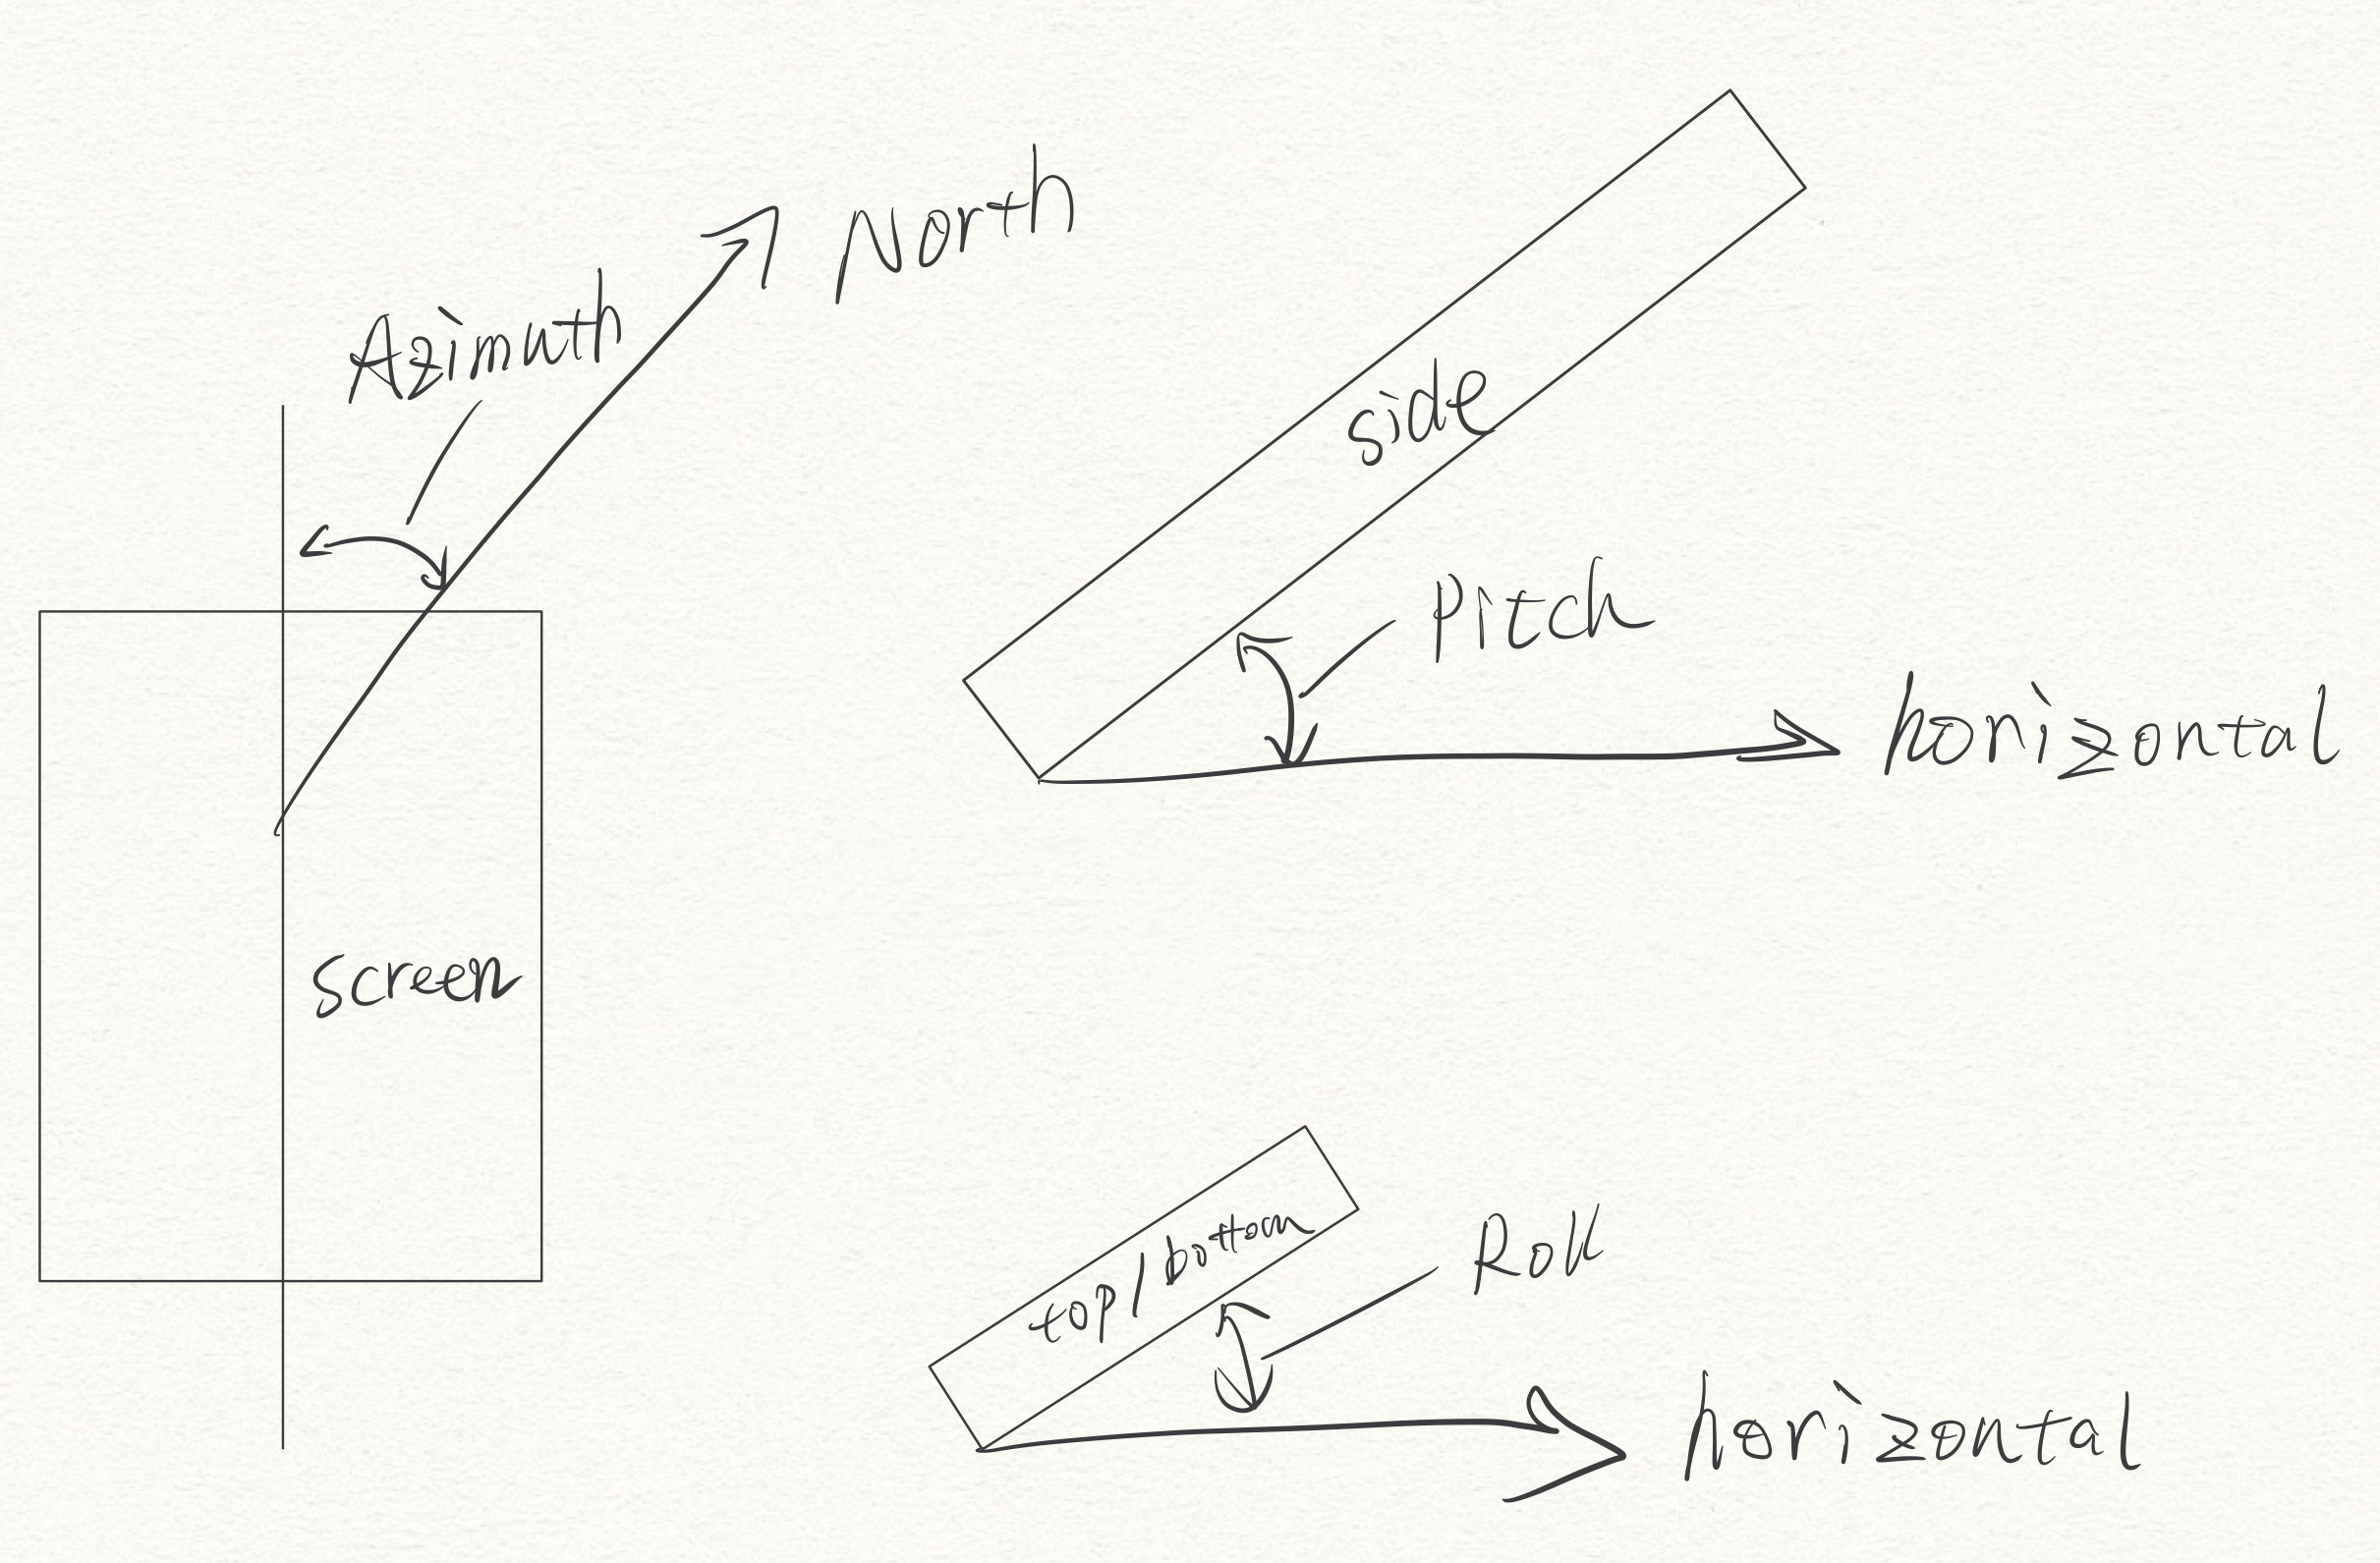 North
Azimuth
screen
side
Pitch
horizontal
top/bottom
Roll
horizontal